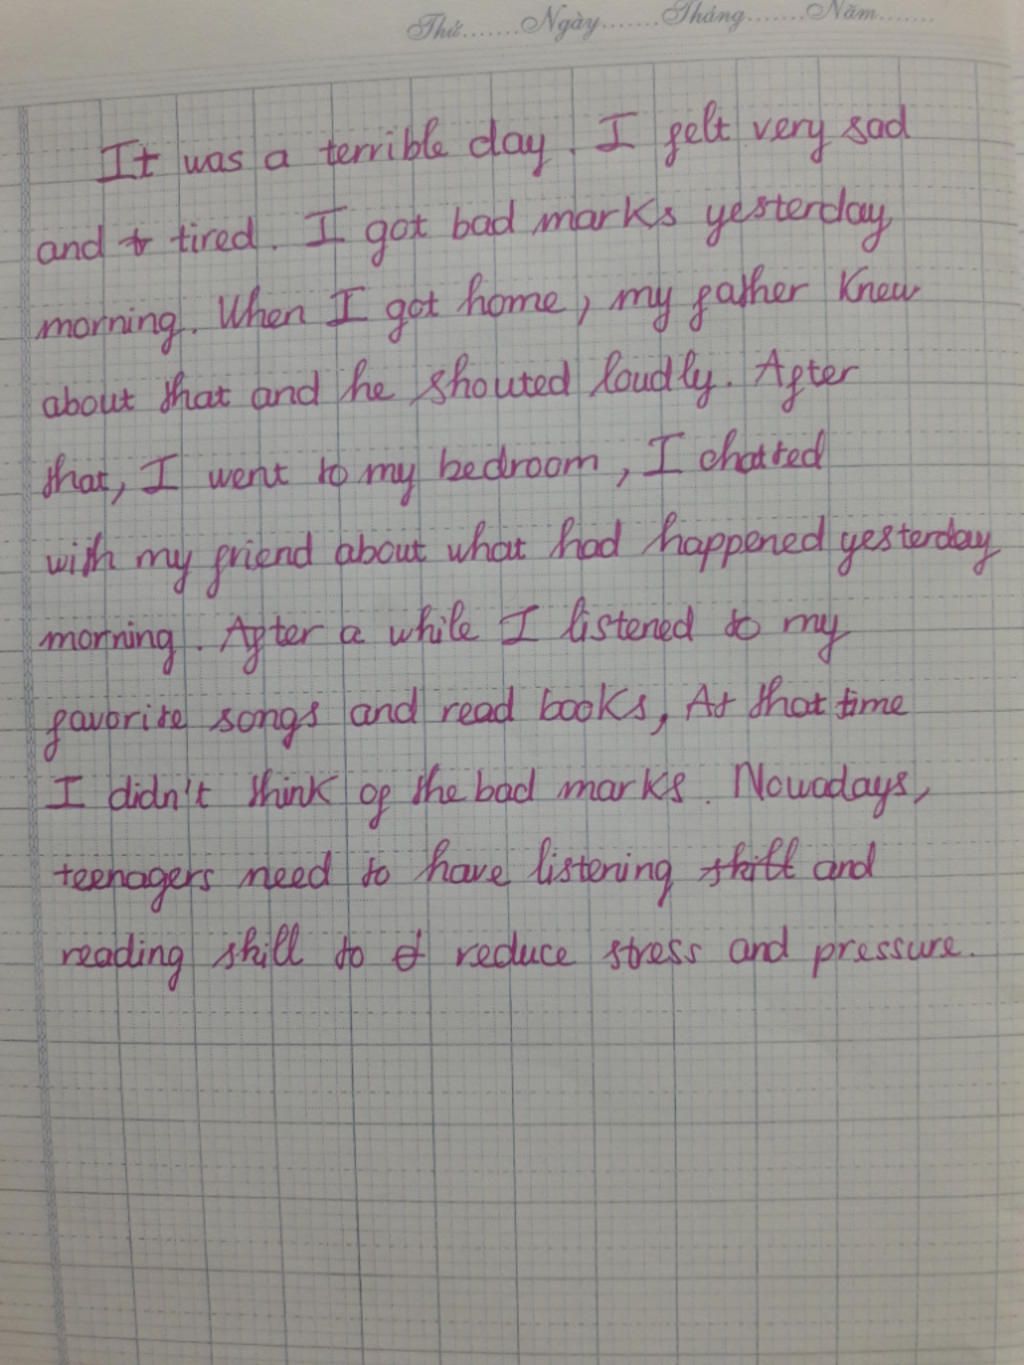 Thứ.......Ngày.......Tháng.......Năm.......
It was a terrible day. I felt very sad
and t tired. I got bad marks yesterday
morning. When I got home, my father knew
about that and he shouted loudly. After
that, I went to my bedroom, I chatted
with my friend about what had happened yesterday
morning. After a while I listened to my
favorite songs and read books, At that time
I didn't think of the bad marks. Nowadays,
teenagers need to have listening skill and
reading skill to reduce stress and pressure.